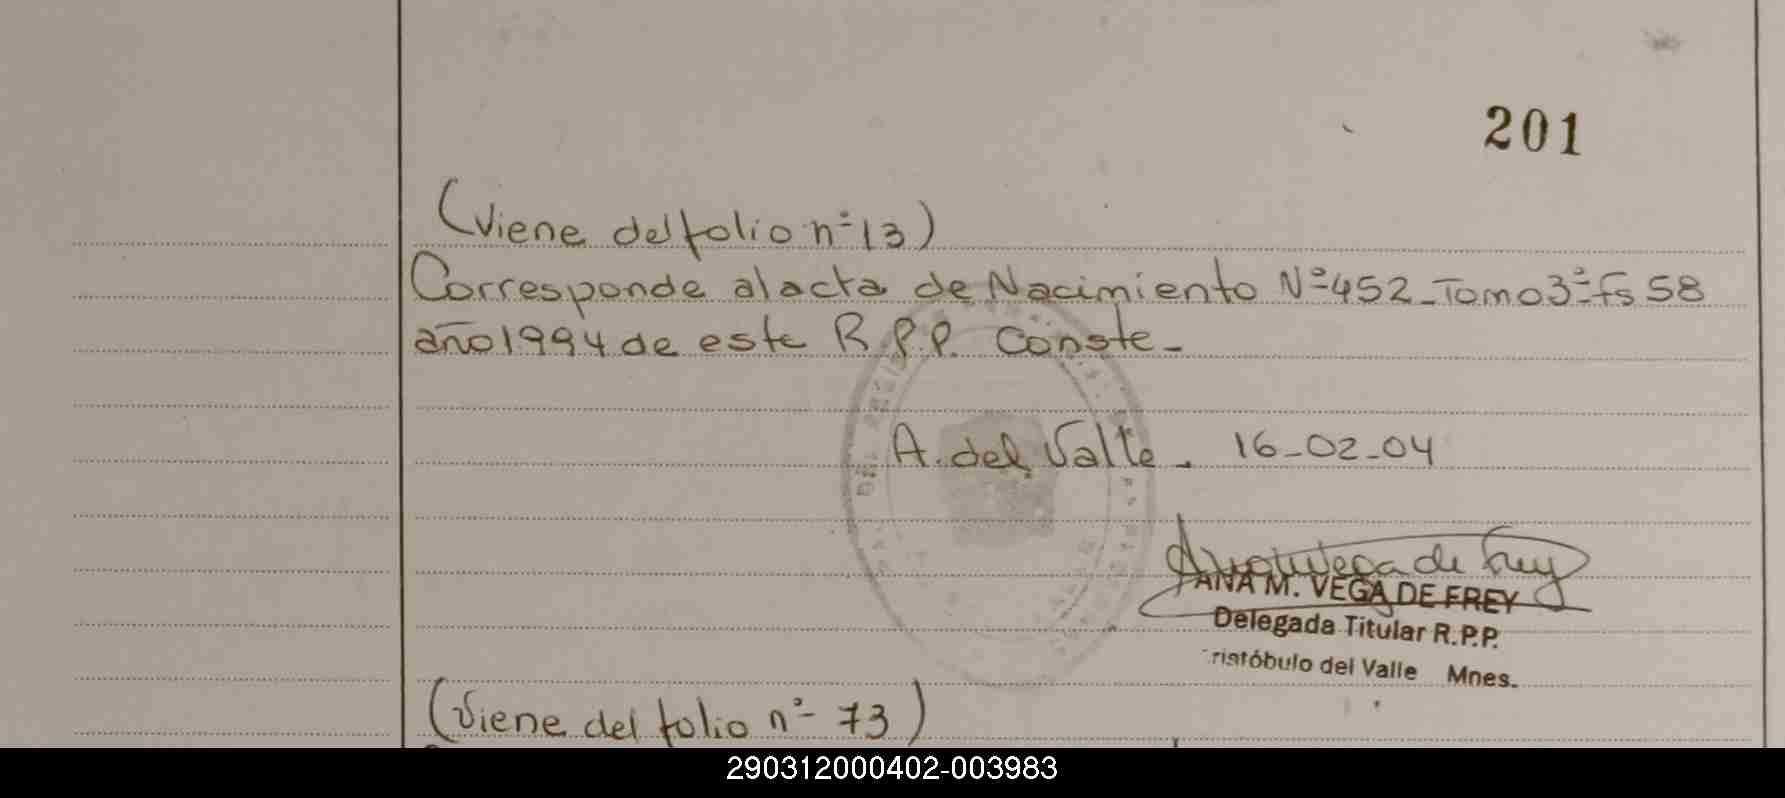 201
(Viene del folio nº 13)
Corresponde al acta de Nacimiento Nº 452 - Tomo 3º - fs 58
año 1994 de este R.P.P. Conste -
A. del Valle. 16-02-04
Ana M Vega de Frey
ANA M. VEGA DE FREY
Delegada Titular R.P.P.
ristóbulo del Valle Mnes.
(Viene del folio nº 73)
290312000402-003983